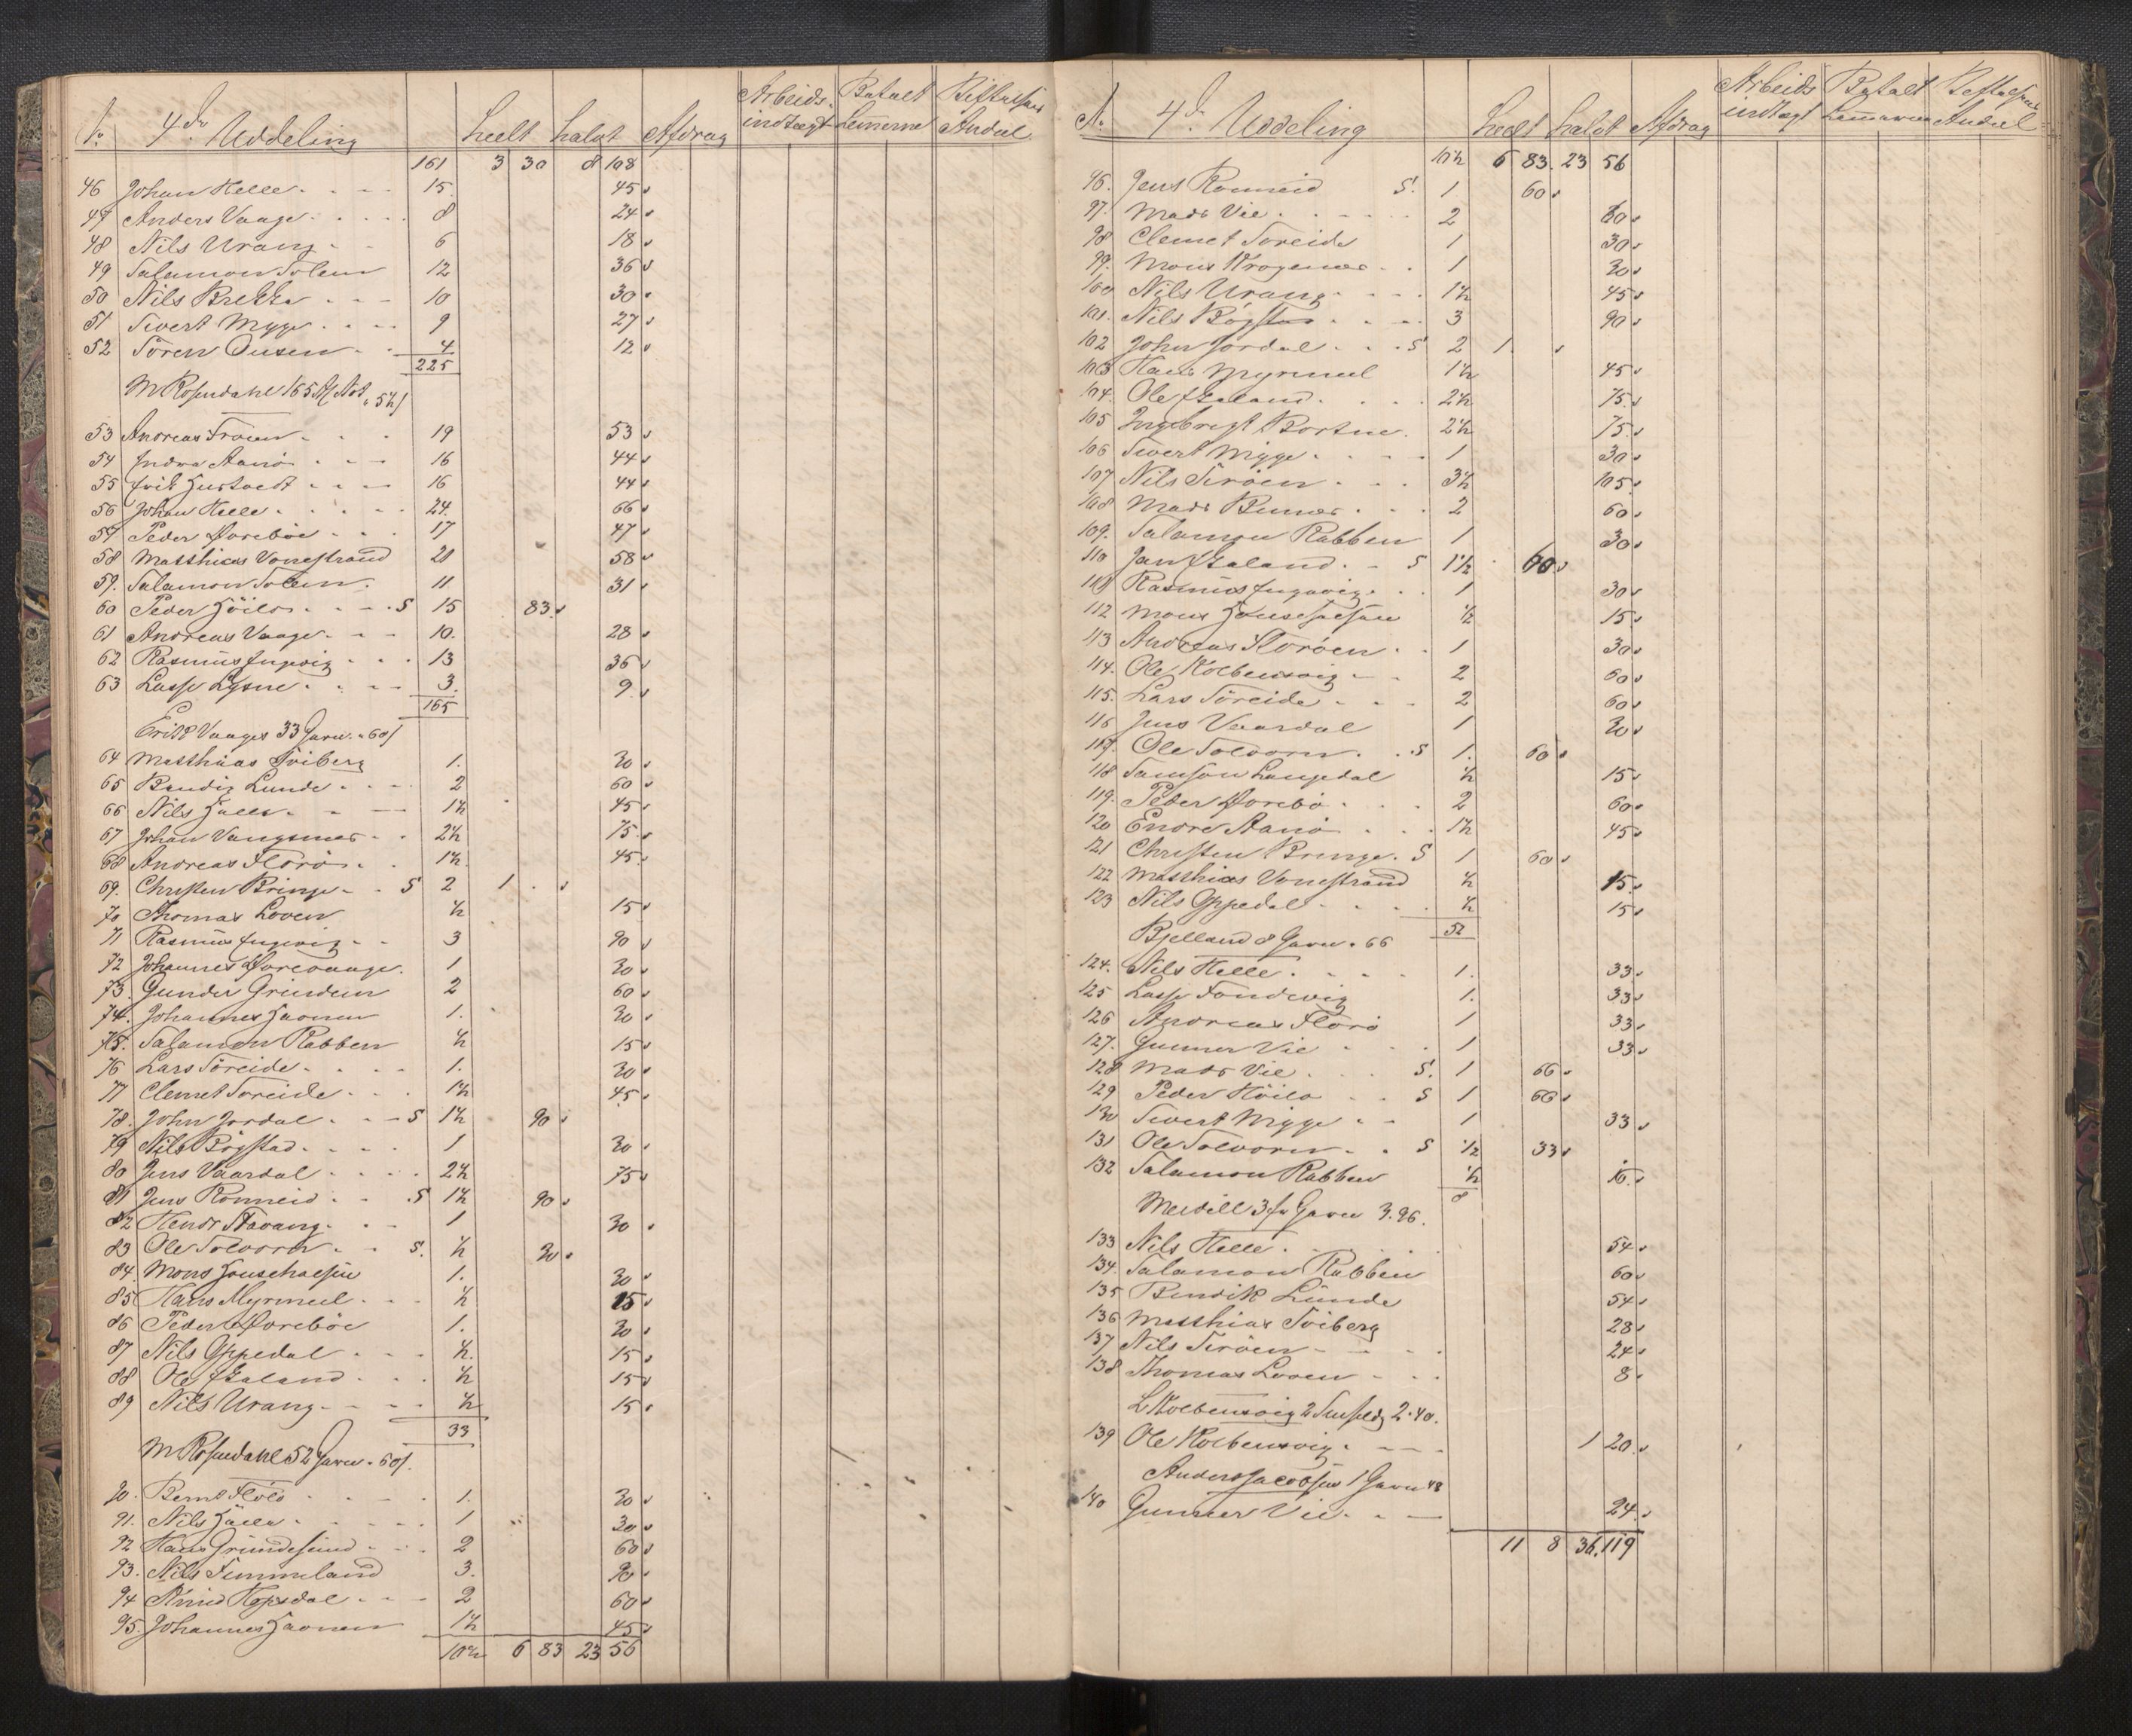 No. 4de Uddeling heelt halvt Afdrag Arbeids indtægt Betalt Lemmerne Bestyrelsens Andeel
161 3 30 8 108
46 Johan Helle 15 45
47 Anders Vaage 8 24
48 Nils Urang 6 18
49 Salamon Solem 12 36
50 Nils Brekke 10 30
51 Sivert Mygge 9 27
52 Sören Ousen 4 12
225
M Rosendahl 165 Al Not 5½
53 Andreas Troen 19 53
54 Indra Aanö 16 44
55 Erik Hustvedt 16 44
56 Johan Helle 24 66
57 Peder Horeböe 17 47
58 Matthias Vonestrand 21 58
59. Salamon Solem 11 31
60 Peder Höilo S 15 83
61 Andreas Vaage 10. 28
62 Rasmus Ingevig 13 36
63 Lasse Lysne 3. 9
165
Erik Vaages 33 Garn. 60
64 Matthias Soiberg 1. 30
65 Bendig Lunde 2 60
66 Nils 1½ 45
67 Johan Vangsnes 2½ 75
68 Andreas Florö 1½ 45
69. Christen Bringe S 2 1
70 Thomas Loven ½ 15
71 Rasmus Ingevig 3 90
72 Johannes Horevaage 1 30
73. Gunder Grindem 2 60
74. Johannes 1. 30
75. Salamon Rabben ½ 15
76 Lars Söreide 1. 30
77 Clemet Soreide 1½ 45
78. John Jordal S 1½ 90
79 Nils Bögstad 1 30
80 Jens Vaardal 2½ 75
81 Jens Ronneid S 1½ 90
82 Hendr Stavang 1 30
83 Ole Solvorn S. ½ 30
84. Mons 1. 30
85 Hans Myrmel ½ 15
86 Peder Horeböe 1. 30
87 Nils Yppedal ½. 15
88 Ole Skaland ½ 15
89 Nils Urang ½ 15
33
M Rosendahl 52 Garn. 60
90. Bernt Florö 1. 30
91. Nils 1 30
92 Hans Grundesund 2 60
93. Nils Timmeland 3. 90
94 Knud Hopsdal 2 60
95. Johannes 1½ 45
10½ 6 83 23 56
No. 4de Uddeling heelt halvt Afdrag Arbeids indtægt Betalt Lemmerne Bestyrelsens Andeel
10½ 6 83. 23 56
96. Jens Ronneid S. 1 60
97. Mads Vie 2 60
98 Clemet Soreide 1 30
99. Mons Krogenæs 1 30
100 Nils Urang 1½ 45
101. Nils Bögstad 3 90
102 John Jordal S 2 1
103 Hans Myrmeel 1½ 45
104. Ole Skaland 2½ 75
105 Ingebrigt Bortne 2½ 75
106 Sivert Mygge 1 30
107 Nils Siröen 3½ 105
108 Mads 2 60
109. Salamon Rabben 1 30
110 Jan Skaland S 1½ 60
111 Rasmus Ingevig 1 30
112 Mons ½ 15
113 Andreas Floröen 1 30
114. Ole Kolbensvig 2 60
115. Lars Söreide 2 60
116 Jens Vaardal 1 30
117. Ole Solvorn S 1. 60
118 Samson Langedal ½ 15
119. Peder Horebö 2 60
120 Endre Aanö 1½ 45
121 Christen Bringe S 1 60
122 Matthias Vonestrand ½ 15
123 Nils Yppedal ½ 15
52
Bjelland 8 Garn. 66
124. Nils Helle 1. 33
125 Lasse Fondevig 1. 33
126 Andreas Florö 1 33
127. Gunner Vie 1 33
128 Mads Vie S. 1 66
129 Peder Höilo S 1 66
130 Sivert Mygge 1 33
131 Ole Solvorn S ½ 33
132 Salamon Rabben ½ 16
8
Garn 3.96.
133 Nils Helle 54
134. Salamon Rabben 60
135 Bendik Lunde 54
136 Matthias Soiberg 28
137 Nils Siröen 24
138 Thomas Loven 8
L Kolbensvig 2 2.40.
139 Ole Kolbensvig 1 20
Anders Jacobsen 1 Garn 48
140 Gunner Vie 24
11 8 36. 119